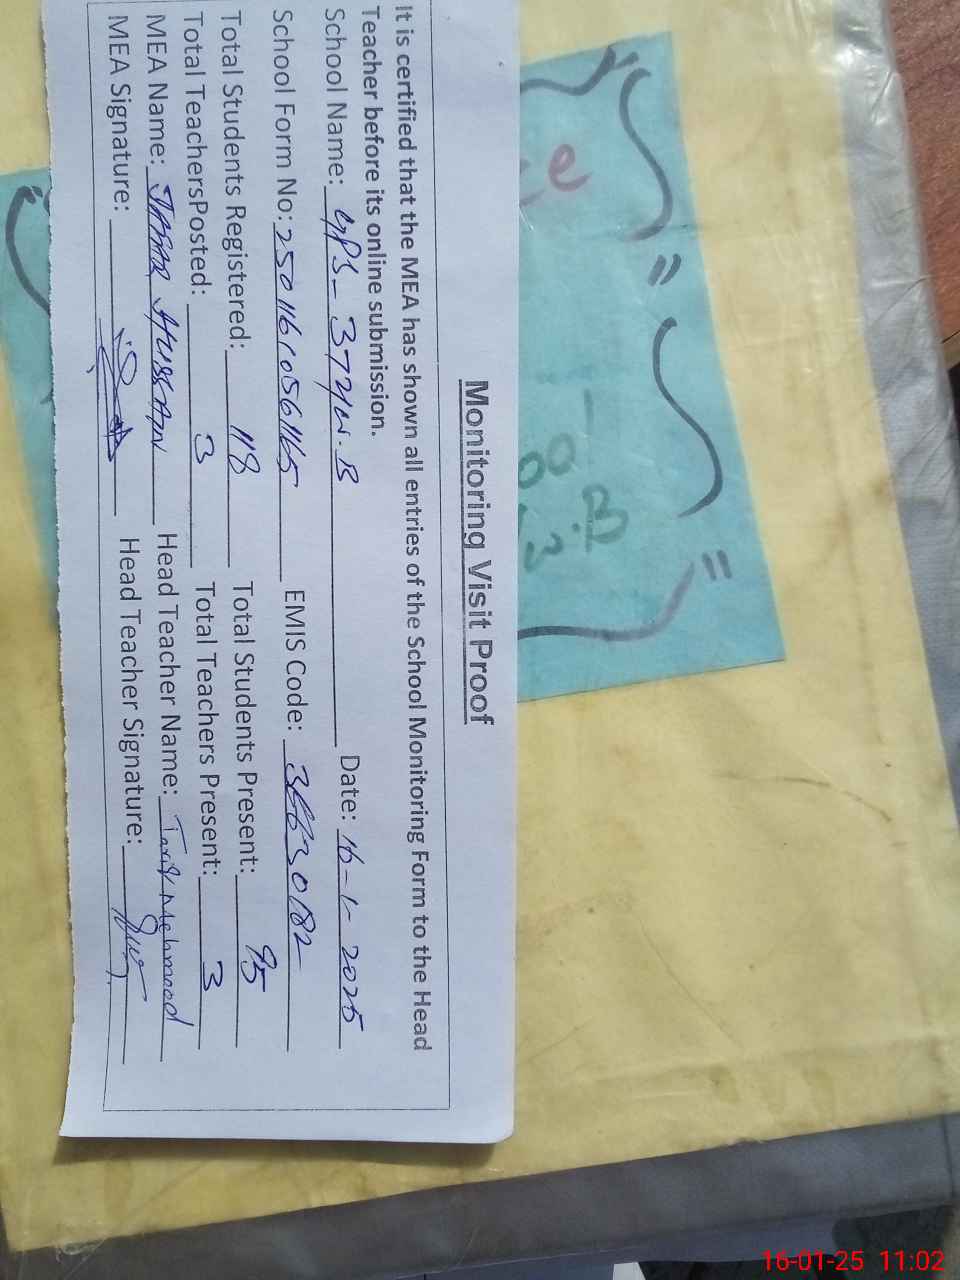 Monitoring Visit Proof
It is certified that the MEA has shown all entries of the School Monitoring Form to the Head
Teacher before its online submission.
School Name: GPS - 374 W.B Date: 16-1-2025
School Form No: 2501161056165 EMIS Code: 36630182
Total Students Registered: 118 Total Students Present: 95
Total TeachersPosted: 3 Total Teachers Present: 3
MEA Name: Hussain Head Teacher Name: Tariq Mehmood
MEA Signature: Head Teacher Signature:
W.B
16-01-25 11:02